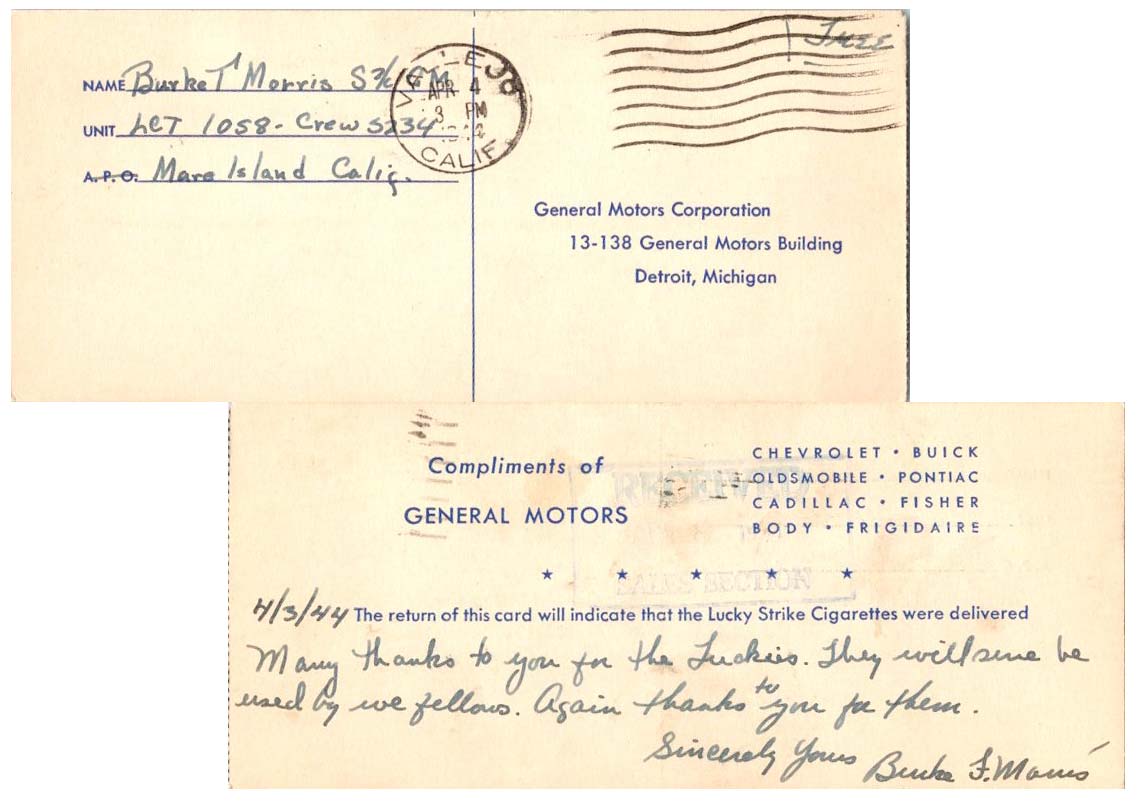 Free
NAME Burke T Morris S 2/c
UNIT LCT 1058 - Crew 5234
A. P. O. Mare Island Calif.
APR 4
3 PM
CALIF.
General Motors Corporation
13-138 General Motors Building
Detroit, Michigan
Compliments of
GENERAL MOTORS
CHEVROLET • BUICK
OLDSMOBILE • PONTIAC
CADILLAC • FISHER
BODY • FRIGIDAIRE
RECEIVED
SALES SECTION
4/3/44 The return of this card will indicate that the Lucky Strike Cigarettes were delivered
Many thanks to you for the Luckies. They will sure be
used by we fellows. Again thanks to you for them.
Sincerely Yours Burke F. Morris